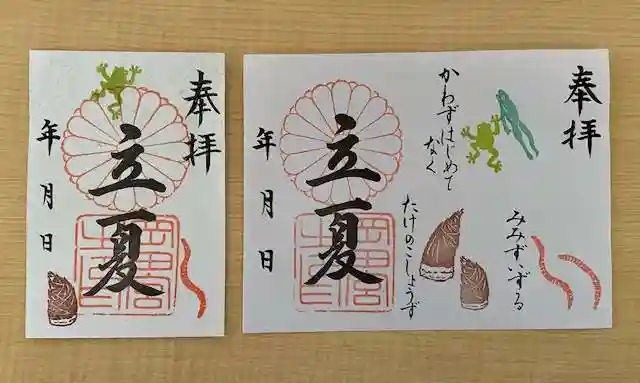 奉拝
立夏
年月日
奉拝
みみずいずる
かわずはじめて
なく
たけのこしょうず
立夏
年月日